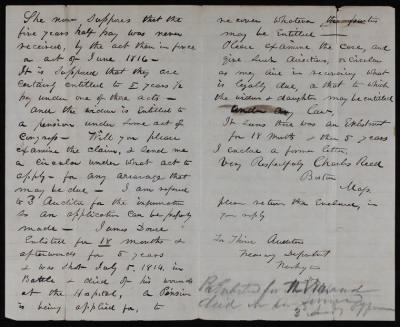 She now supposes that the
five years half pay was never
received, by the act then in force
a act of June 1816 -
It is supposed that they are
certainly entitled to 5 years ½
pay under one of these acts -
and the widow is entitled to
a pension under some act of
Congress - Will you please
examine the claims, & send me
a circular under what act to
apply - for any arrearage that
may be due - I am refered
to 3d Auditor for the information
so an application can be properly
made - James Dowe
Enlisted for 18 months &
afterwards for 5 years
& was shot July 5, 1814, in
Battle & died of his wounds
at the Hospital, a Pension
is being applied for, to
recover whatever
may be Entitled -
Please examine the Case, and
give such direction, or Circular
as may aid in recovering what
is legally due, or that to which
the widow & daughter may be entitled
under any Law,
It seems there was an Enlistment
for 18 Months & then 5 years
I enclose a former letter.
Very Respectfully Charles Reed
Boston
Mass.
please return the Enclosure, in
your reply
To Third Auditor
Treasury Department
Washgtn
Reinlisted for
died